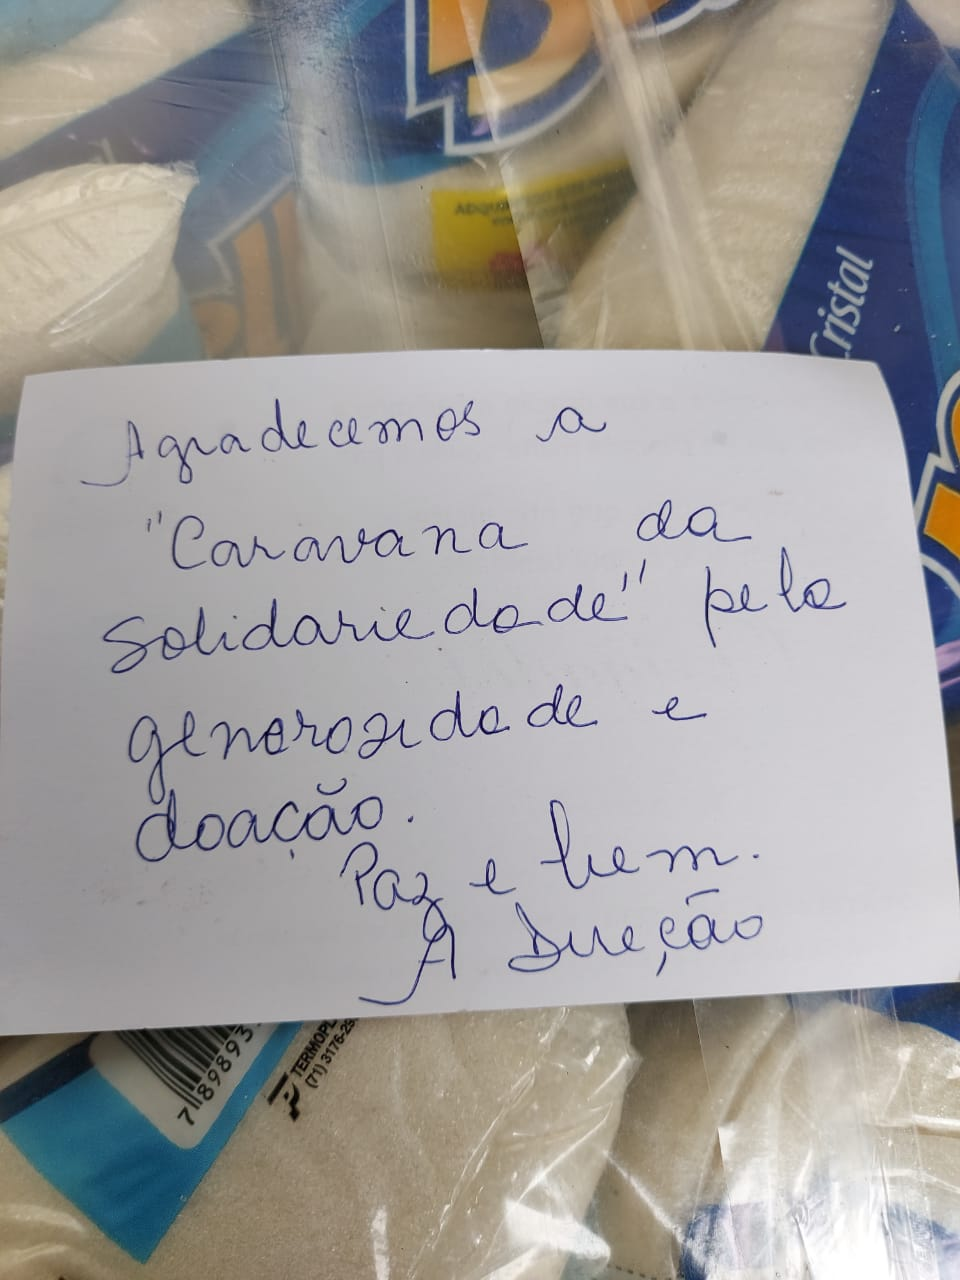 Cristal
Agradecemos a
"Caravana da
Solidariedade" pela
generosidade e
doação.
Paz e bem.
A Direção
789893
(71) 3176-25